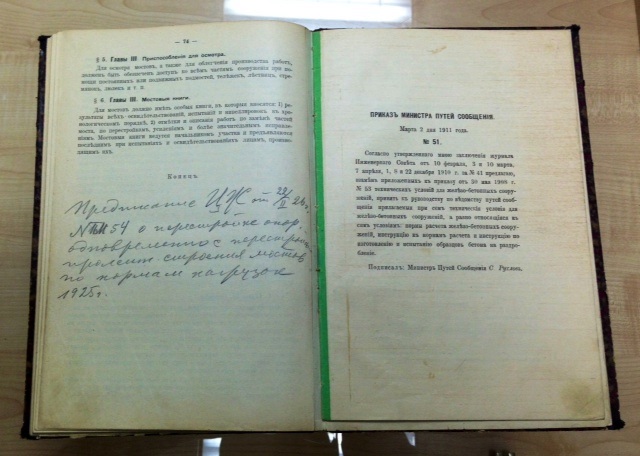 — 74 —
§ 5. Главы III. Приспособленія для осмотра.
Для осмотра мостовъ, а также для облегченія производства работъ,
долженъ быть обезпеченъ доступъ ко всѣмъ частямъ сооруженія при по-
мощи постоянныхъ или подвижныхъ подмостей, телѣжекъ, лѣстницъ,
люлекъ и т. п.
§ 6. Главы III. Мостовыя книги.
Для мостовъ должны быть особыя книги, въ которыя заносятся: 1) ре-
зультаты всѣхъ освидѣтельствованій, испытаній и нивеллировокъ въ хро-
нологическомъ порядкѣ, 2) отмѣтки и описанія работъ по замѣнѣ частей
моста, по перестройкамъ, усиленіямъ и болѣе значительнымъ исправле-
ніямъ. Мостовыя книги ведутся начальниками участка и предъявляются
послѣднимъ при испытаніяхъ и освидѣтельствованіяхъ лицамъ, произво-
дящимъ ихъ.
Конецъ
Предписание ЦЖ от 29/II 24г.
№ 54 о перестройке опор
одновременно с перестрой
пролетн. строения мостов
по нормам нагрузок
1925г.
ПРИКАЗЪ МИНИСТРА ПУТЕЙ СООБЩЕНІЯ.
Марта 2 дня 1911 года.
№ 51.
Согласно утвержденнаго мною заключенія журнала
Инженернаго Совѣта отъ 10 февраля, 3 и 10 марта,
7 апрѣля, 1, 8 и 22 декабря 1910 г. за № 41 предлагаю,
взамѣнъ приложенныхъ къ приказу отъ 30 мая 1909 г.
№ 53 техническихъ условій для желѣзо-бетонныхъ сооруже-
ній, принять къ руководству по вѣдомству путей сооб-
щенія приложенныя при семъ техническія условія для
желѣзо-бетонныхъ сооруженій, а равно относящіяся къ
симъ условіямъ: нормы расчета желѣзо-бетонныхъ сооруже-
ній, инструкцію къ нормамъ расчета и инструкцію по
изготовленію и испытанію образцовъ бетона на раздроб-
леніе.
Подписалъ: Министръ Путей Сообщенія С. Рухловъ.